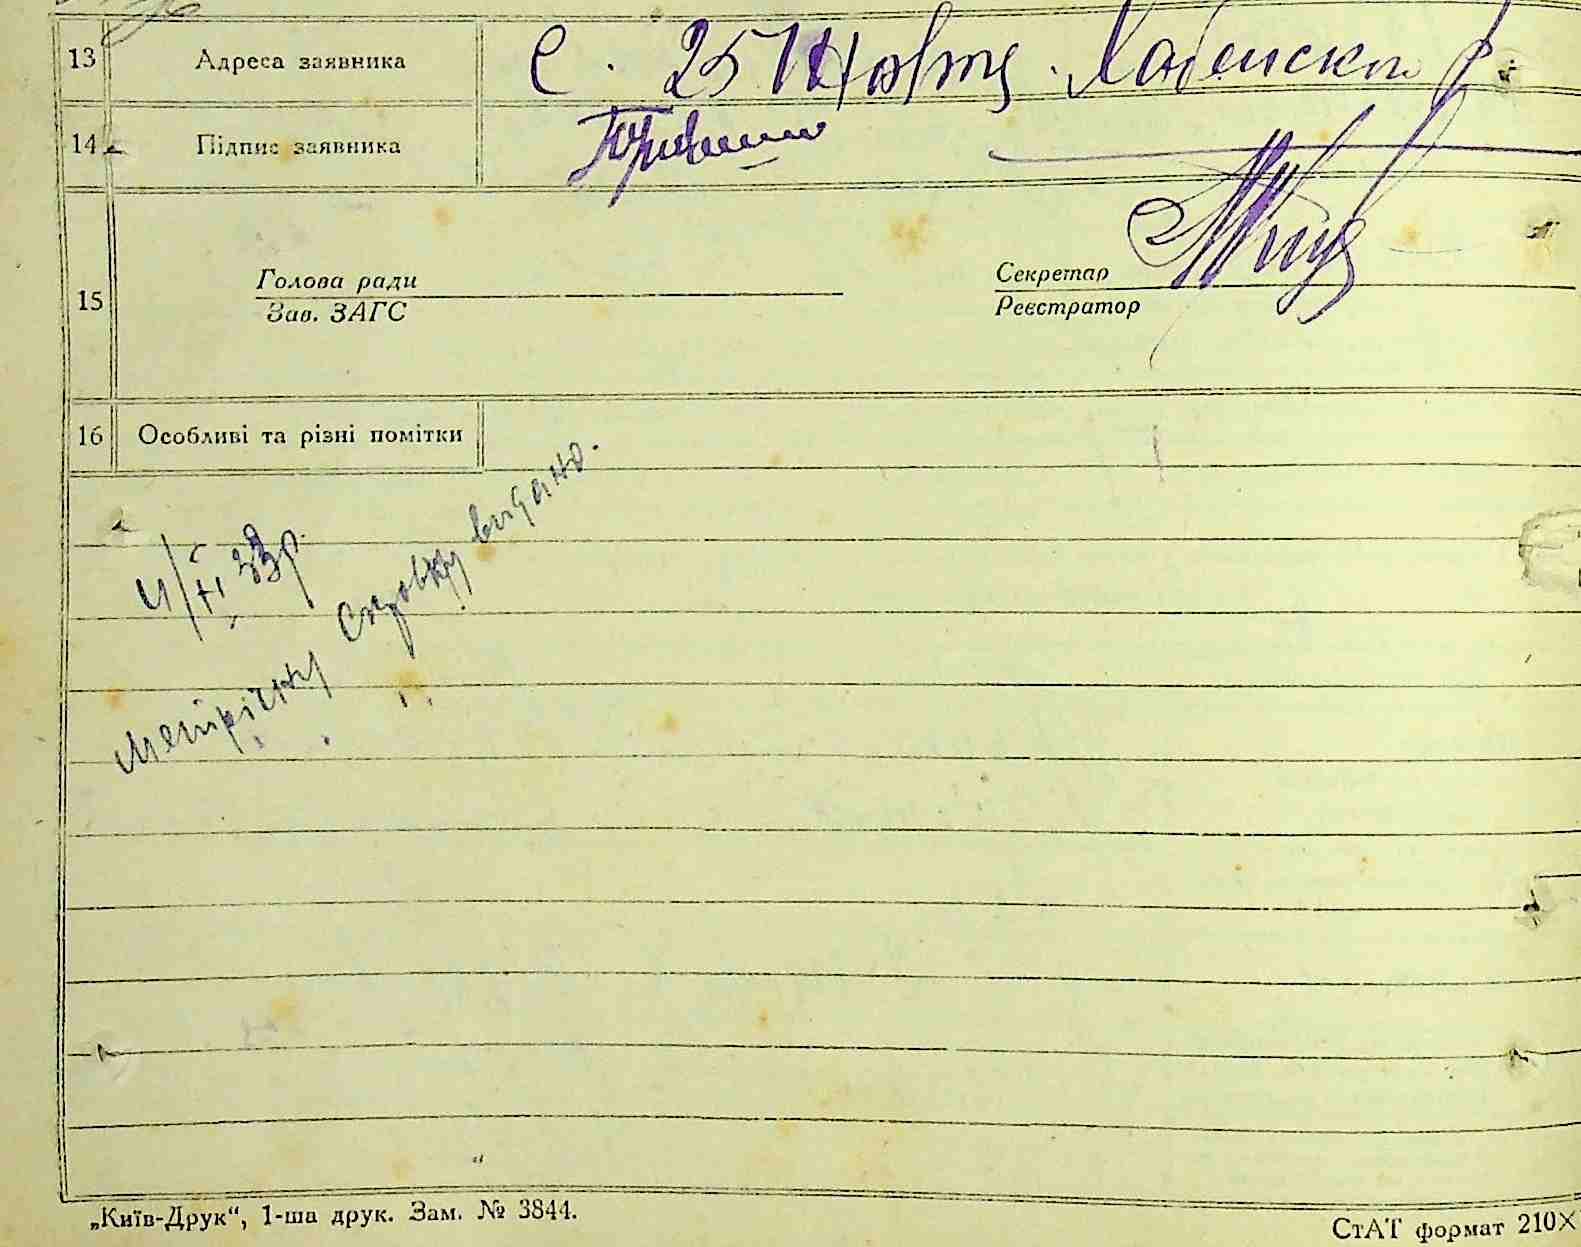 13 Адреса заявника с. 25 Жовтня
14 Підпис заявника
15 Голова ради Секретар
Зав. ЗАГС Реєстратор
16 Особливі та різні помітки
33р.
метричну видано.
„Київ-Друк“, 1-ша друк. Зам. № 3844.
СтАТ формат 210×